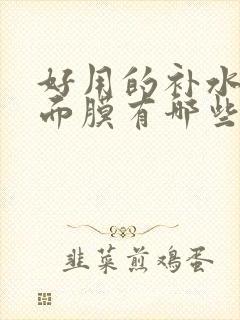 好用的补水
面膜有哪些
韭菜煎鸡蛋